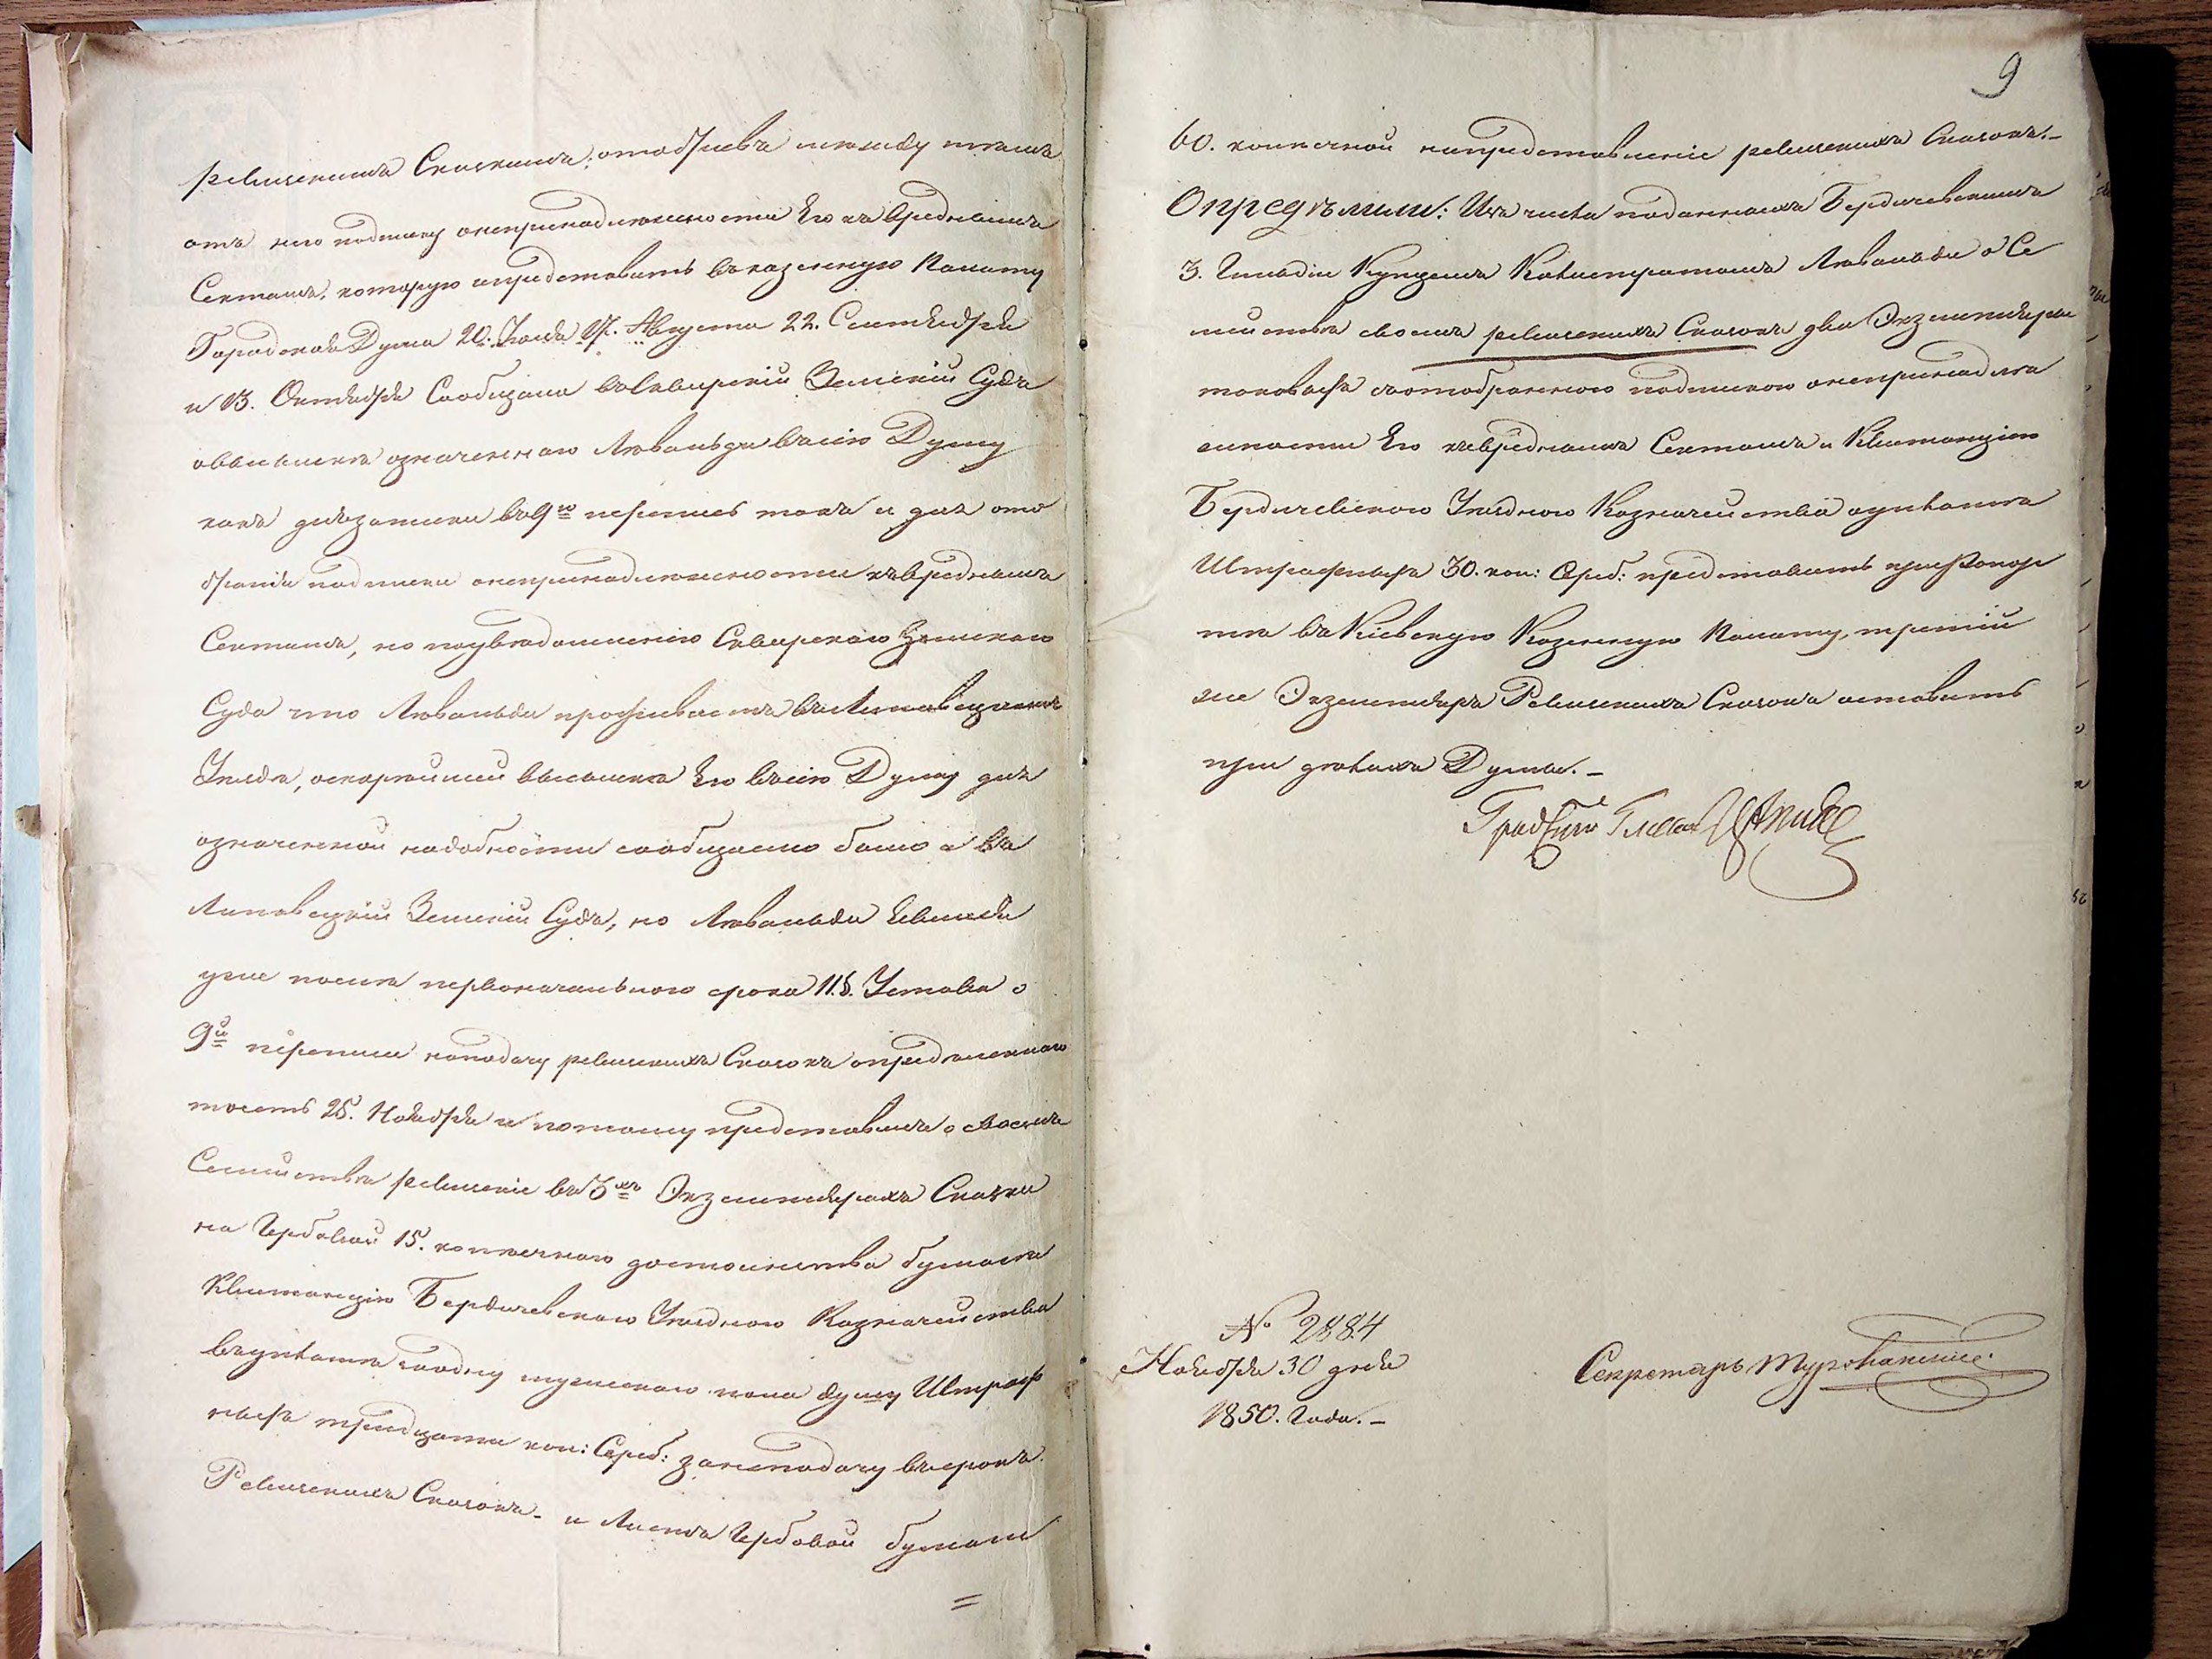 ревизскимъ Сказкамъ, отобравъ между темъ
отъ него подписку онепринадлежности Его къ вреднымъ
Сектамъ, которую и представить въ казенную Палату
Городская Дума 20. Іюля 17. Августа 22. Сентября
и 13. Октября Сообщала въ Сквирскій Земскій Судъ
овысылкѣ означеннаго Ловальди въ сію Думу
какъ для записки въ 9ю перепись такъ и для ото
бранія подписки онепринадлежности къ вреднымъ
Сектамъ, но поувѣдомленію Сквирскаго Земскаго
Суда что Ловальди проживаетъ въ Липовецкомъ
Уѣздѣ, оскорѣйшей высылкѣ Его въ сію Думу для
означенной надобности сообщено было и въ
Липовецкій Земскій Судъ, но Ловальди Явился
уже послѣ первоначальнаго срока 11.§. Устава о
9й переписи на подачу ревизскихъ Сказокъ опредѣленнаго
тоесть 25. Ноября и потому представилъ о своемъ
Семействѣ ревизскіе въ 3хъ Экземплярахъ Сказки
на Гербовой 15. копѣечнаго достоинства бумагѣ
Квитанцію Бердичевскаго Уѣзднаго Казначейства
въ уплатѣ за одну мужескаго пола душу Штраф
ныхъ тридцати коп: Сереб: за неподачу въ срокъ
Ревизскихъ Сказокъ и Листъ Гербовой бумаги
=
9
60. копѣечной на представленіе ревизскихъ Сказокъ.–
Опредѣлили: Изъ числа поданныхъ Бердичевскимъ
3. Гильдіи Купцемъ Ловальди о Се
мействѣ своемъ ревизскихъ Сказокъ два Экземпляра
таковыхъ съ отобранною подпискою онепринадле
жности Его къ вреднымъ Сектамъ и Квитанціею
Бердичевскаго Уѣзднаго Казначейства о уплатѣ
Штрафныхъ 30. коп: Сереб: представить при Рапор
тѣ въ Кіевскую Казенную Палату, третій
же Экземпляръ Ревизскихъ Сказокъ оставить
при дѣлахъ Думы. –
Градскій Глава
№ 2884
Ноября 30 дня
1850. Года. –
Секретарь